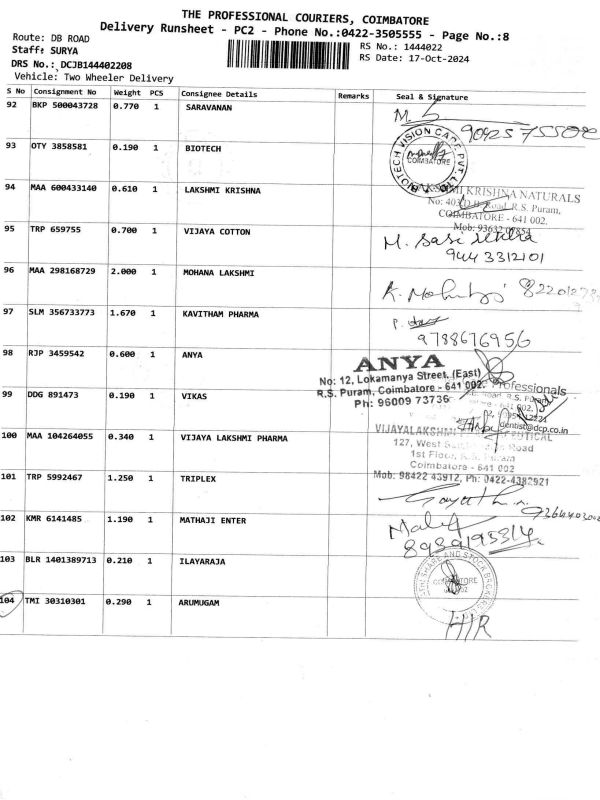 THE PROFESSIONAL COURIERS, COIMBATORE
Delivery Runsheet - PC2 - Phone No.:0422-3505555 - Page No.:8
Route: DB ROAD
RS No.: 1444022
Staff: SURYA
RS Date: 17-Oct-2024
DRS No.: DCJB144402208
Vehicle: Two Wheeler Delivery
S No Consignment No Weight PCS Consignee Details Remarks Seal & Signature
92 BKP 500043728 0.770 1 SARAVANAN
93 OTY 3858581 0.190 1 BIOTECH
BIOTECH VISION CARE PVT. LTD.
COIMBATORE
94 MAA 600433140 0.610 1 LAKSHMI KRISHNA
LAKSHMI KRISHNA NATURALS
R.S. Puram,
COIMBATORE - 641 002.
95 TRP 659755 0.700 1 VIJAYA COTTON
9443312101
96 MAA 298168729 2.000 1 MOHANA LAKSHMI
97 SLM 356733773 1.670 1 KAVITHAM PHARMA
9788676956
98 RJP 3459542 0.600 1 ANYA
ANYA
No: 12, Lokamanya Street, (East)
R.S. Puram, Coimbatore - 641 002.
Ph: 96009 73736
Professionals
dentist@dcp.co.in
99 DDG 891473 0.190 1 VIKAS
100 MAA 104264055 0.340 1 VIJAYA LAKSHMI PHARMA
VIJAYALAKSHMI
127, West Road
1st Floor, R.S. Puram
Coimbatore - 641 002
Mob: 98422 43912, Ph: 0422-4382921
101 TRP 5992467 1.250 1 TRIPLEX
102 KMR 6141485 1.190 1 MATHAJI ENTER
103 BLR 1401389713 0.210 1 ILAYARAJA
SHARE AND STOCK
104 TMI 30310301 0.290 1 ARUMUGAM